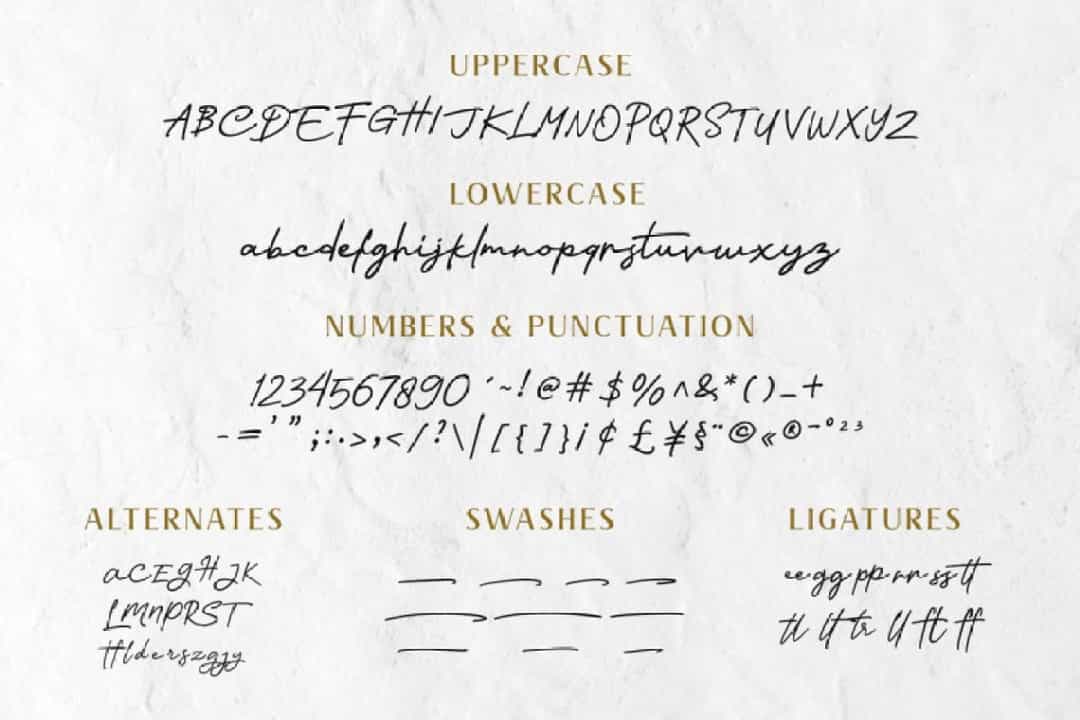 UPPERCASE
ABCDEFGHIJKLMNOPQRSTUVWXYZ
LOWERCASE
abcdefghijklmnopqrstuvwxyz
NUMBERS & PUNCTUATION
1234567890 ´~!@#$%^&*()_+
-='";:.>,</?\|[{]}¡¢£¥§¨©«®¯°²³
ALTERNATES
aCEgHJK
LmnPRST
SWASHES
LIGATURES
ee gg pp rr ss tt
tl lt tr ll ft ff